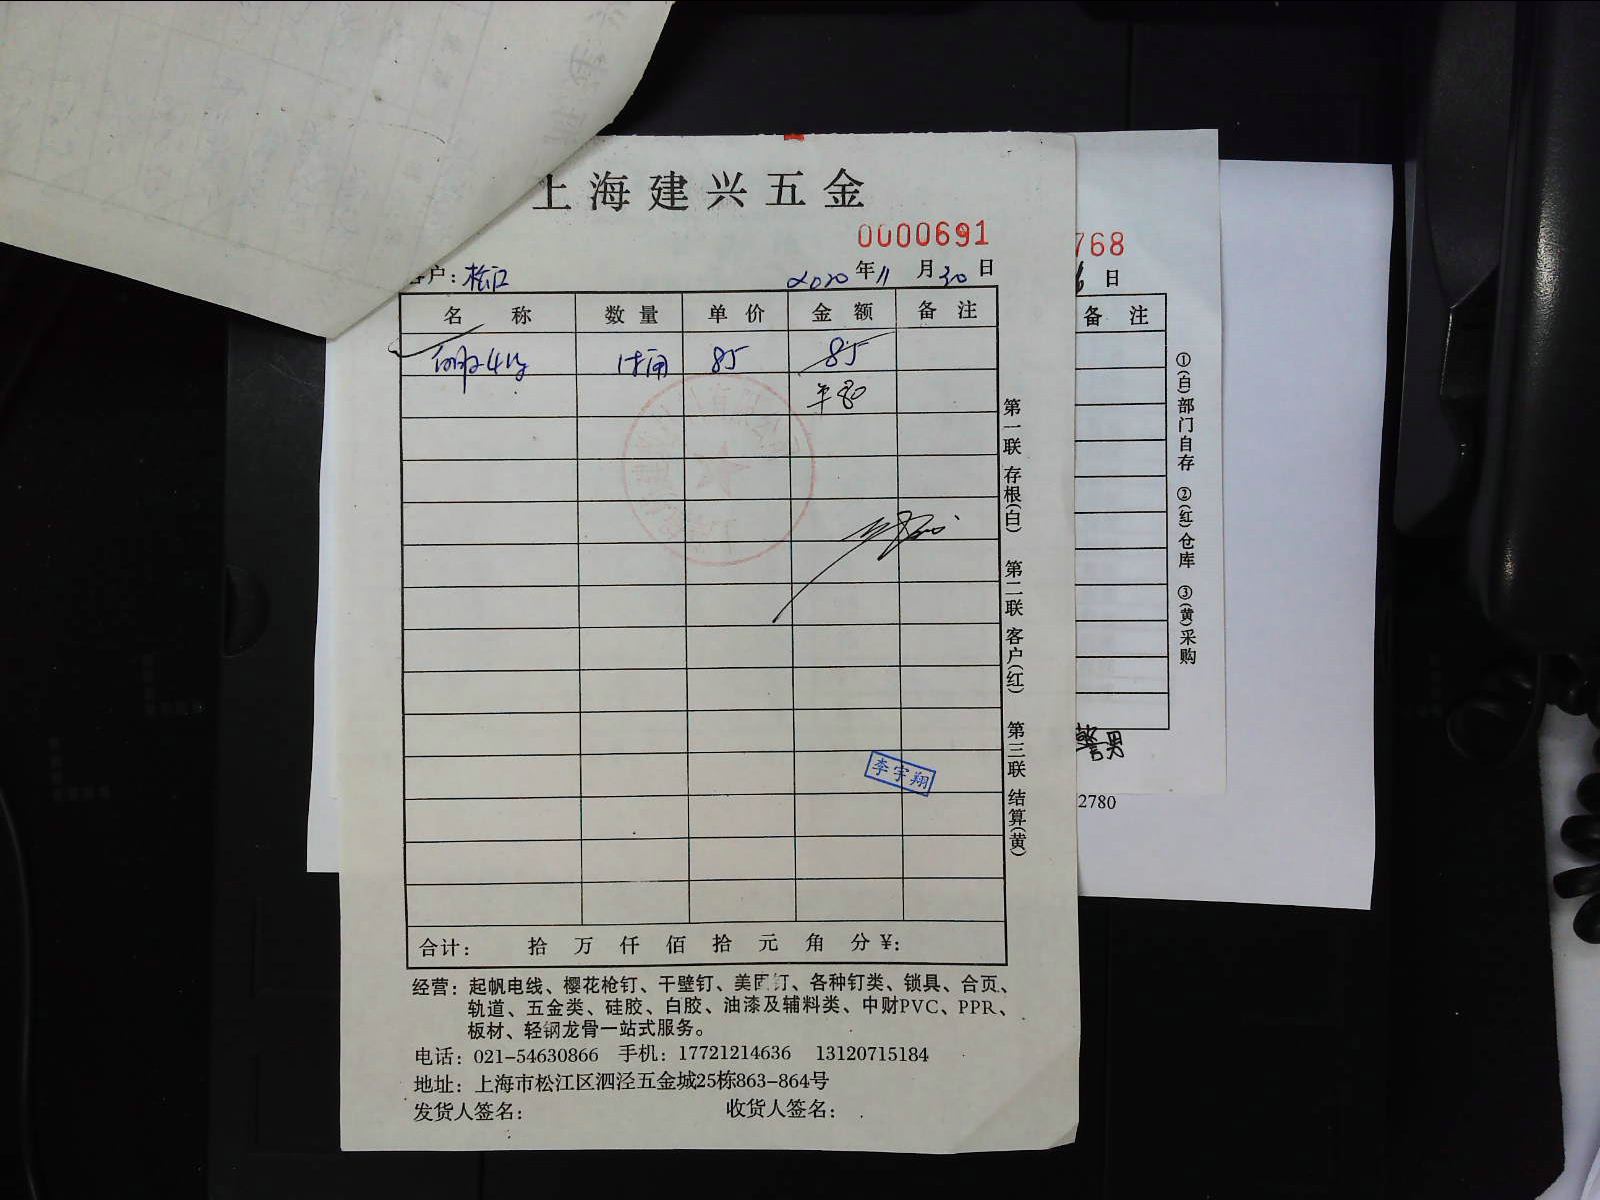 上海建兴五金
0000691
客户：松江 2020年11月30日
名称 数量 单价 金额 备注
1桶 85 85
80
第一联 存根(白) 第二联 客户(红) 第三联 结算(黄)
李宇翔
合计： 拾 万 仟 佰 拾 元 角 分 ¥：
经营：起帆电线、樱花枪钉、干壁钉、美固钉、各种钉类、锁具、合页、
轨道、五金类、硅胶、白胶、油漆及辅料类、中财PVC、PPR、
板材、轻钢龙骨一站式服务。
电话：021-54630866 手机：17721214636 13120715184
地址：上海市松江区泗泾五金城25栋863-864号
发货人签名： 收货人签名：
768
日
备注
①(白)部门自存 ②(红)仓库 ③(黄)采购
2780